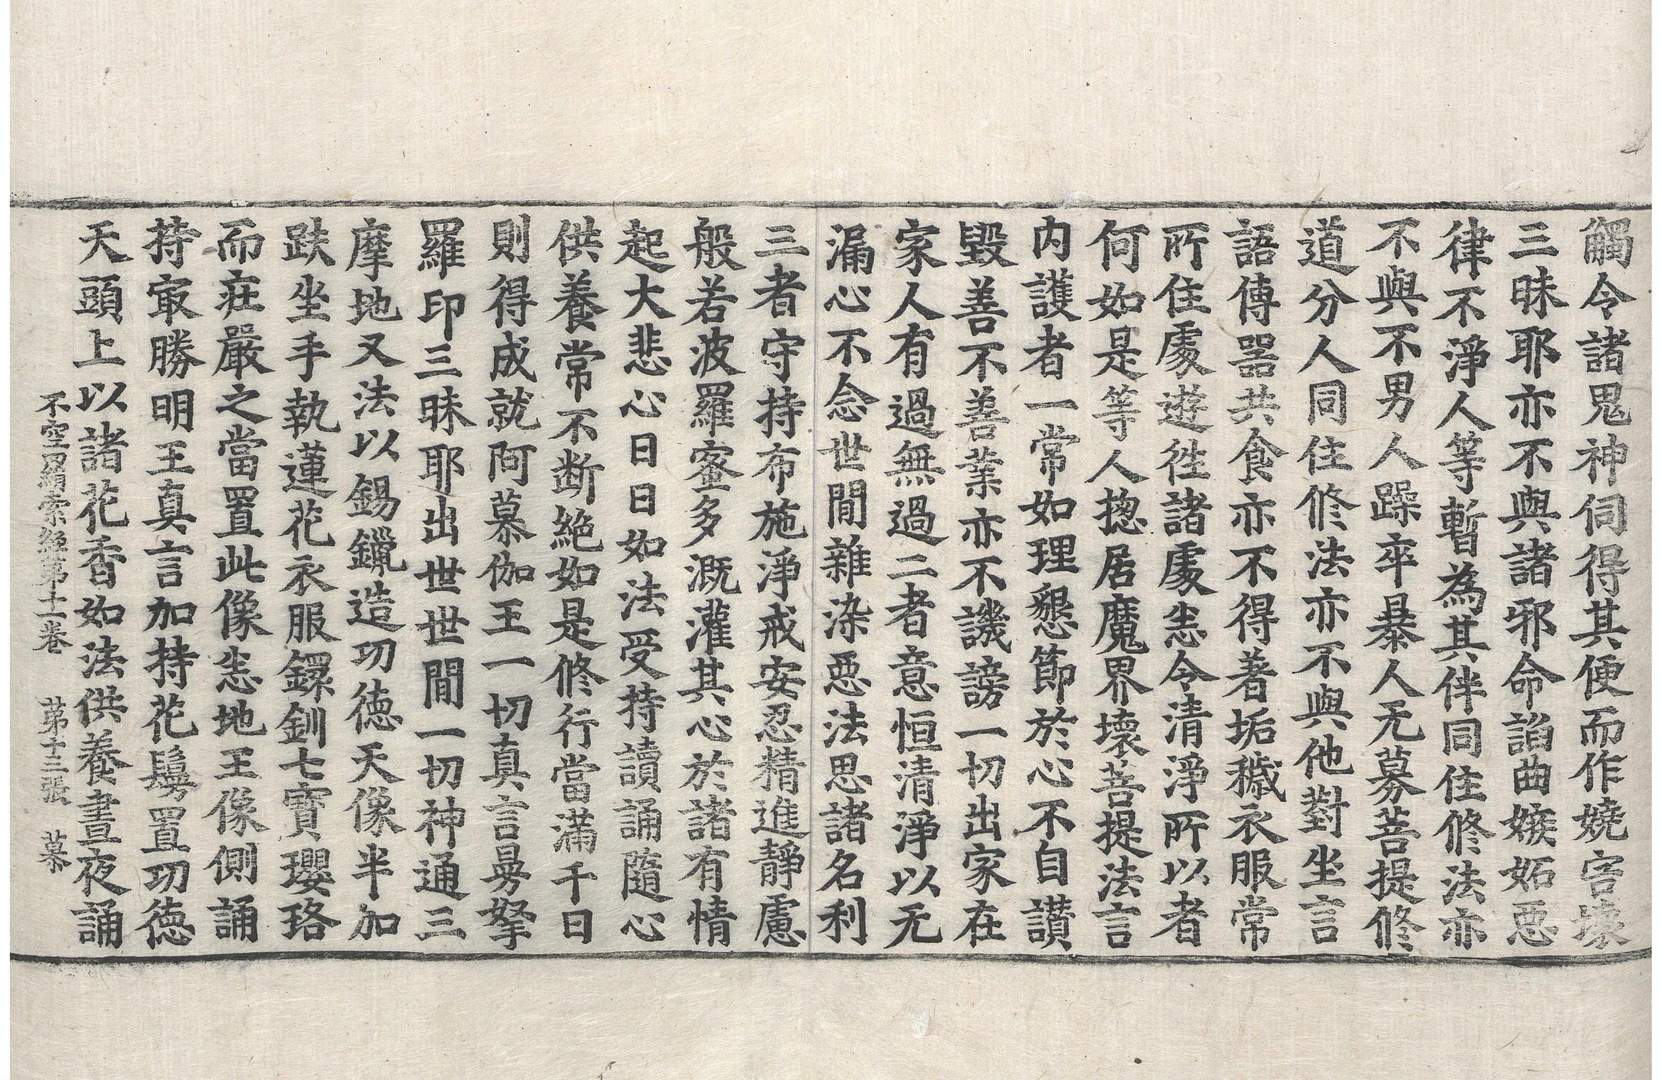 觸令諸鬼神伺得其便而作嬈害壞
三昧耶亦不與諸邪命諂曲嫉妬惡
律不淨人等暫為其伴同住修法亦
不與不男人躁卒暴人无募菩提修
道分人同住修法亦不與他對坐言
語傳器共食亦不得著垢穢衣服常
所住處遊往諸處恙令清淨所以者
何如是等人揔居魔界壞菩提法言
内護者一常如理懇節於心不自讃
毀善不善業亦不譏謗一切出家在
家人有過無過二者意恒清淨以无
漏心不念世閒雜染惡法思諸名利
三者守持布施淨戒安忍精進靜慮
般若波羅蜜多溉灌其心於諸有情
起大悲心日日如法受持讀誦隨心
供養常不断絶如是修行當滿千日
則得成就阿慕伽王一切真言㝵拏
羅印三昧耶出世世間一切神通三
摩地又法以錫鑞造功徳天像半加
趺坐手執蓮花衣服鐶釧七寶瓔珞
而莊嚴之當置此像恙地王像側誦
持㝡勝明王真言加持花鬘置功徳
天頭上以諸花香如法供養晝夜誦
不空罥索經第十一卷　第十三張　慕